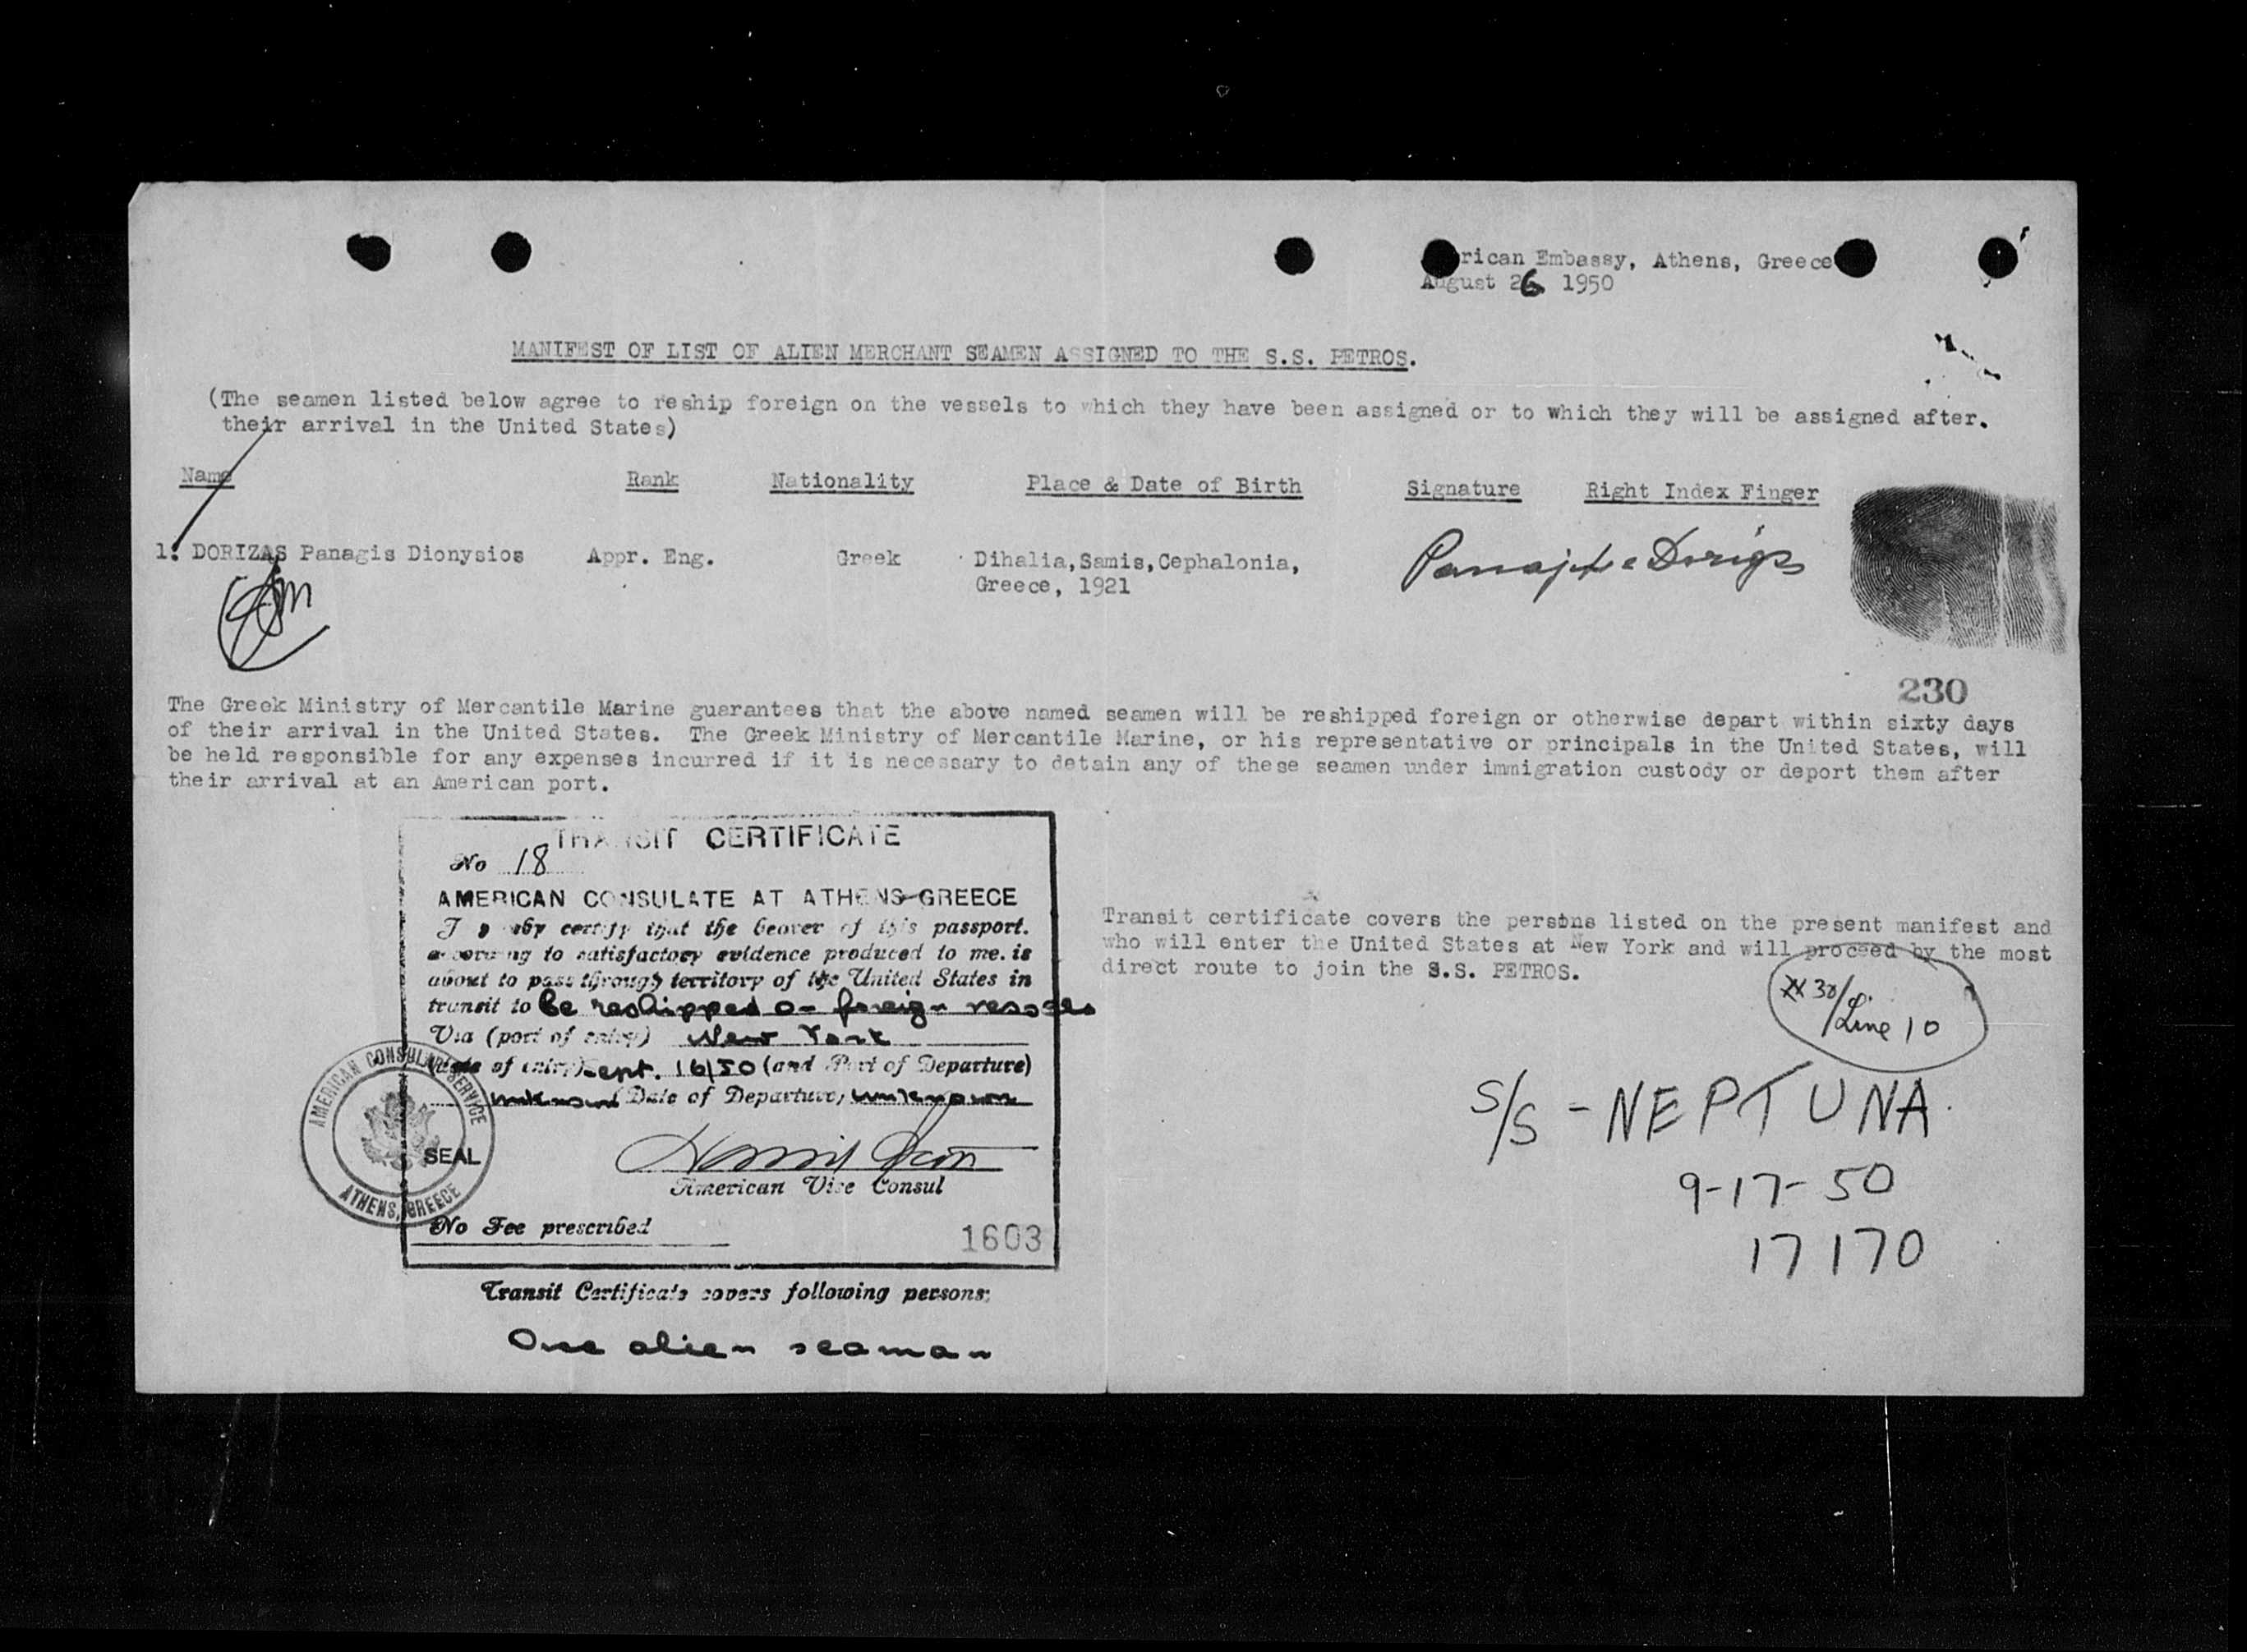 rican Embassy, Athens, Greece
August 26 1950
MANIFEST OF LIST OF ALIEN MERCHANT SEAMEN ASSIGNED TO THE S.S. PETROS.
(The seamen listed below agree to reship foreign on the vessels to which they have been assigned or to which they will be assigned after.
their arrival in the United States)
Name Rank Nationality Place & Date of Birth Signature Right Index Finger
1. DORIZAS Panagis Dionysios Appr. Eng. Greek Dihalia,Samis,Cephalonia,
Greece, 1921
230
The Greek Ministry of Mercantile Marine guarantees that the above named seamen will be reshipped foreign or otherwise depart within sixty days
of their arrival in the United States. The Greek Ministry of Mercantile Marine, or his representative or principals in the United States, will
be held responsible for any expenses incurred if it is necessary to detain any of these seamen under immigration custody or deport them after
their arrival at an American port.
TRANSIT CERTIFICATE
No 18
AMERICAN CONSULATE AT ATHENS-GREECE
I hereby certify that the bearer of this passport.
according to satisfactory evidence produced to me. is
about to pass through territory of the United States in
transit to be reshipped on foreign vessels
Via (port of entry) New York
(date of entry) Sept. 16/50 (and Port of Departure)
unknown Date of Departure, unknown
American Vice Consul
No Fee prescribed
1603
AMERICAN CONSULAR SERVICE
SEAL
ATHENS, GREECE
Transit Certificate covers following persons:
One alien seaman
Transit certificate covers the persons listed on the present manifest and
who will enter the United States at New York and will proceed by the most
direct route to join the S.S. PETROS.
30/
Line 10
S/S - NEPTUNA
9-17-50
17170